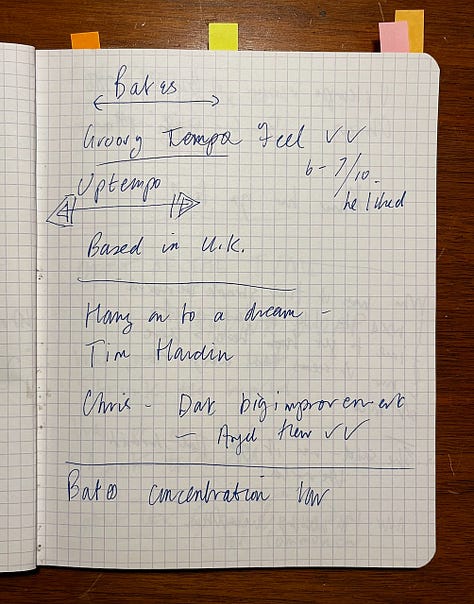 Bates
Groovy Tempo Feel ✓✓
6-7/10.
he liked
Uptempo
Based in U.K.
Hang on to a dream -
Tim Hardin
Chris - big improvement
- ✓✓
concentration low